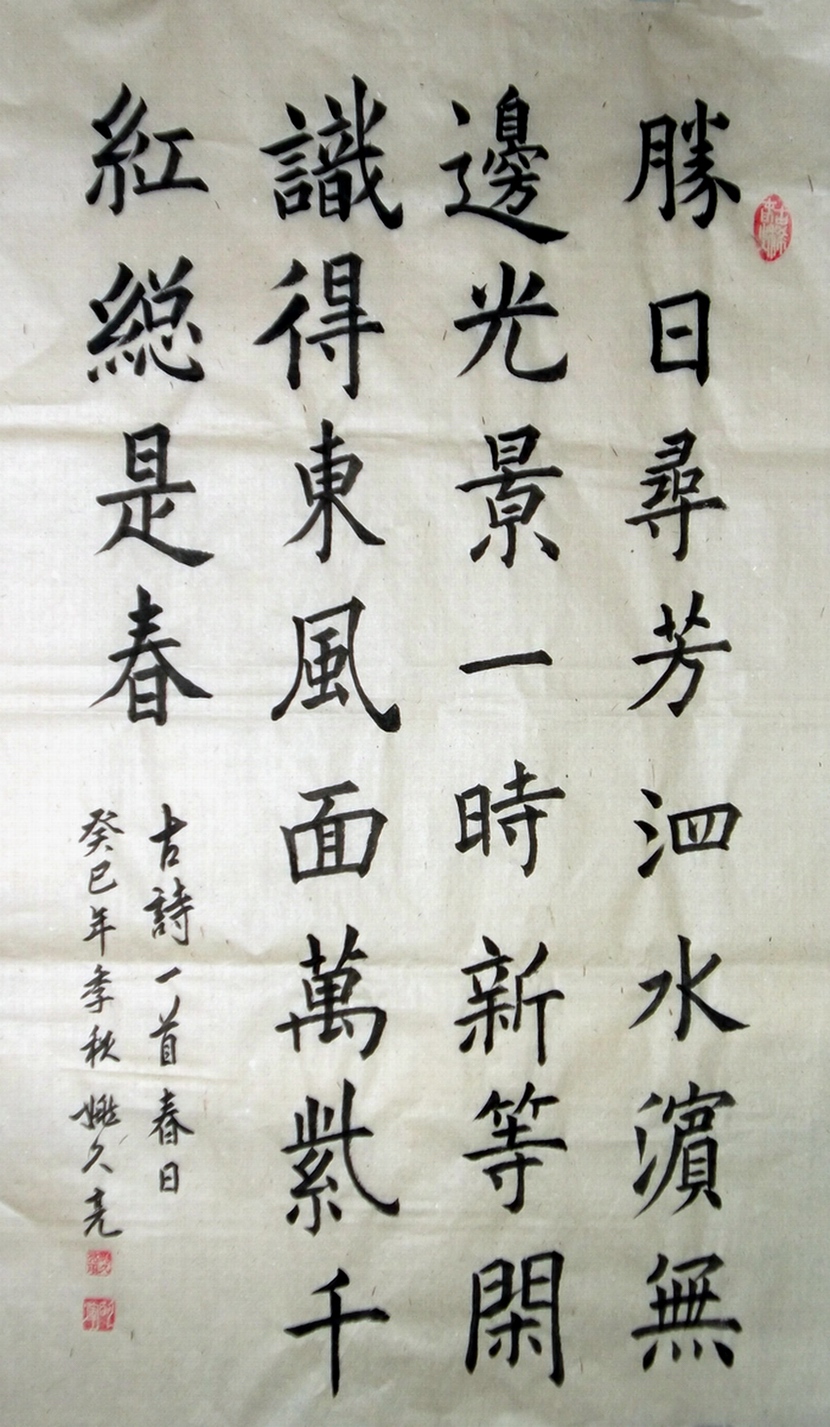 勝日尋芳泗水濵無
邊光景一時新等閑
識得東風面萬紫千
紅縂是春
古詩一首春日
癸巳年季秋姚久亮